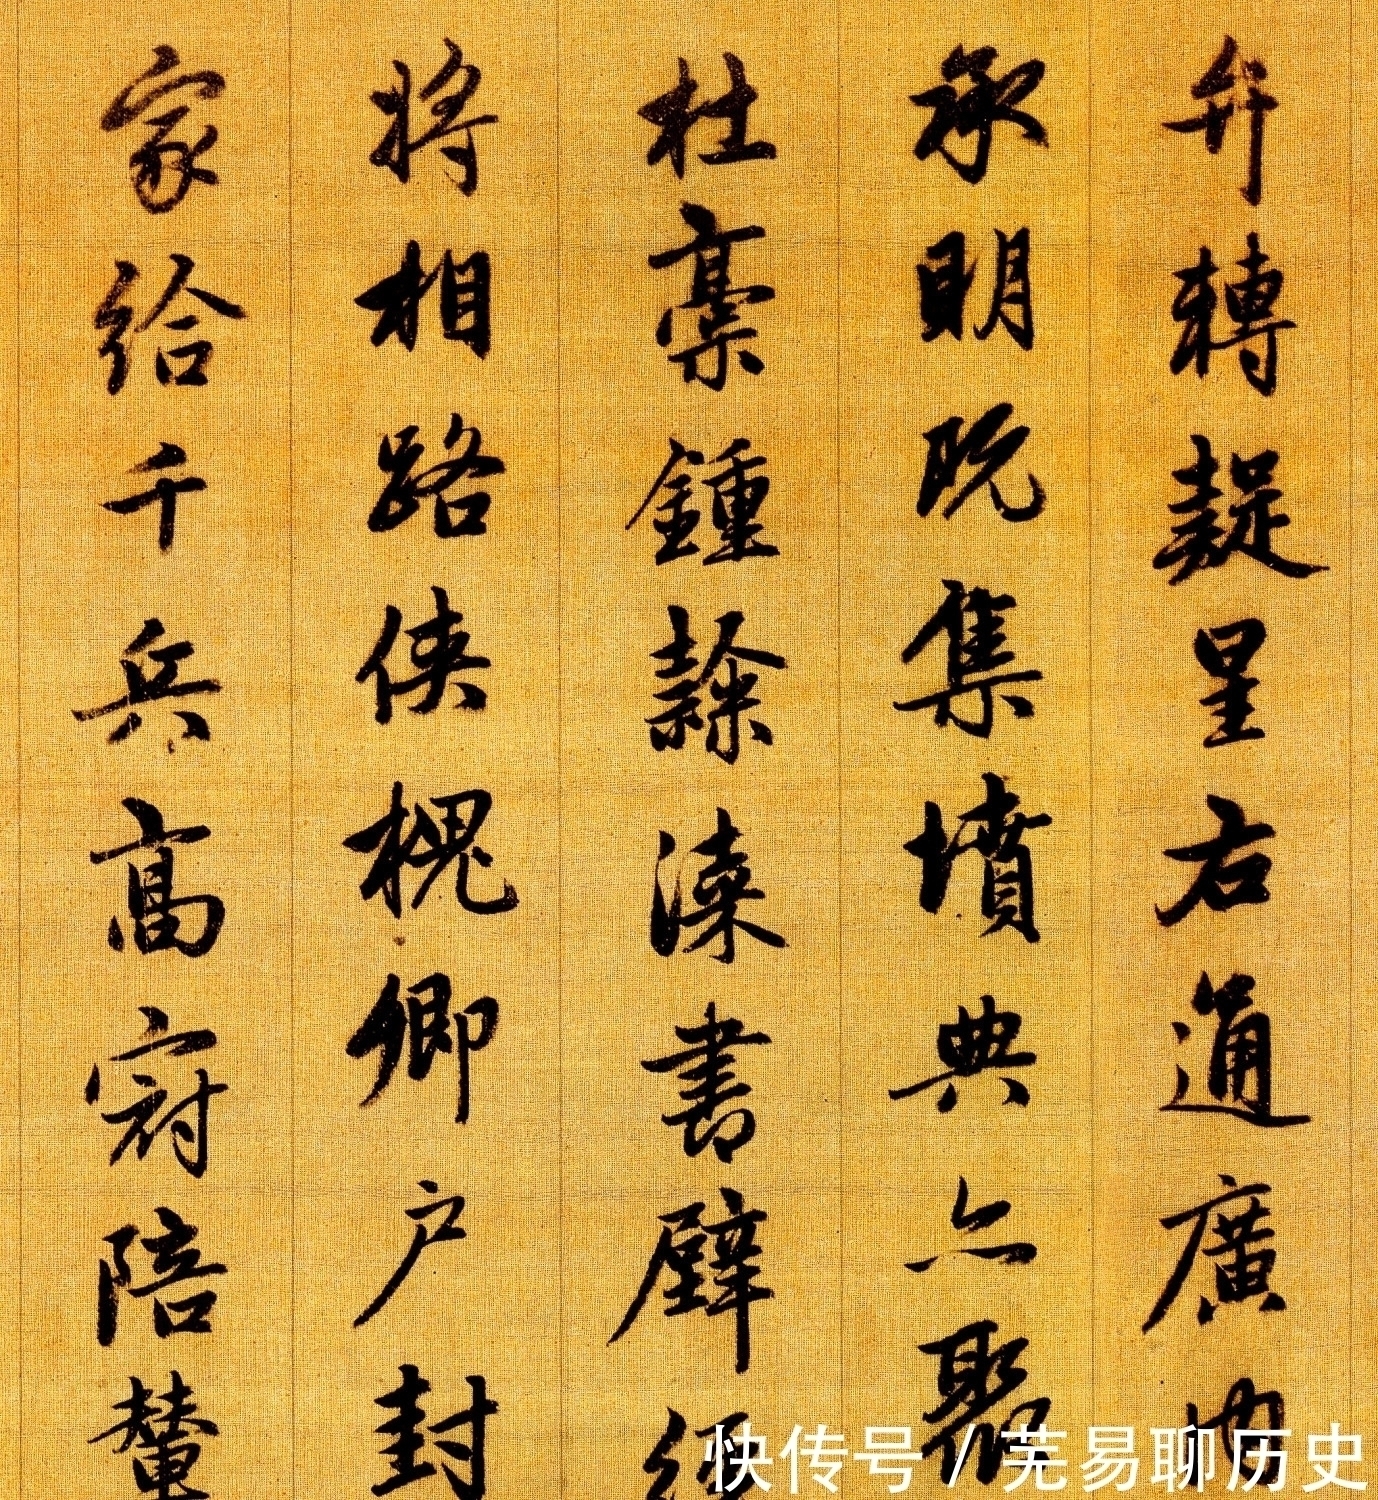 弁轉疑星右通廣内
承明既集墳典亦聚
杜稾鍾隸漆書壁經
將相路俠槐卿户封
家給千兵高冠陪輦
快传号 / 芜易聊历史